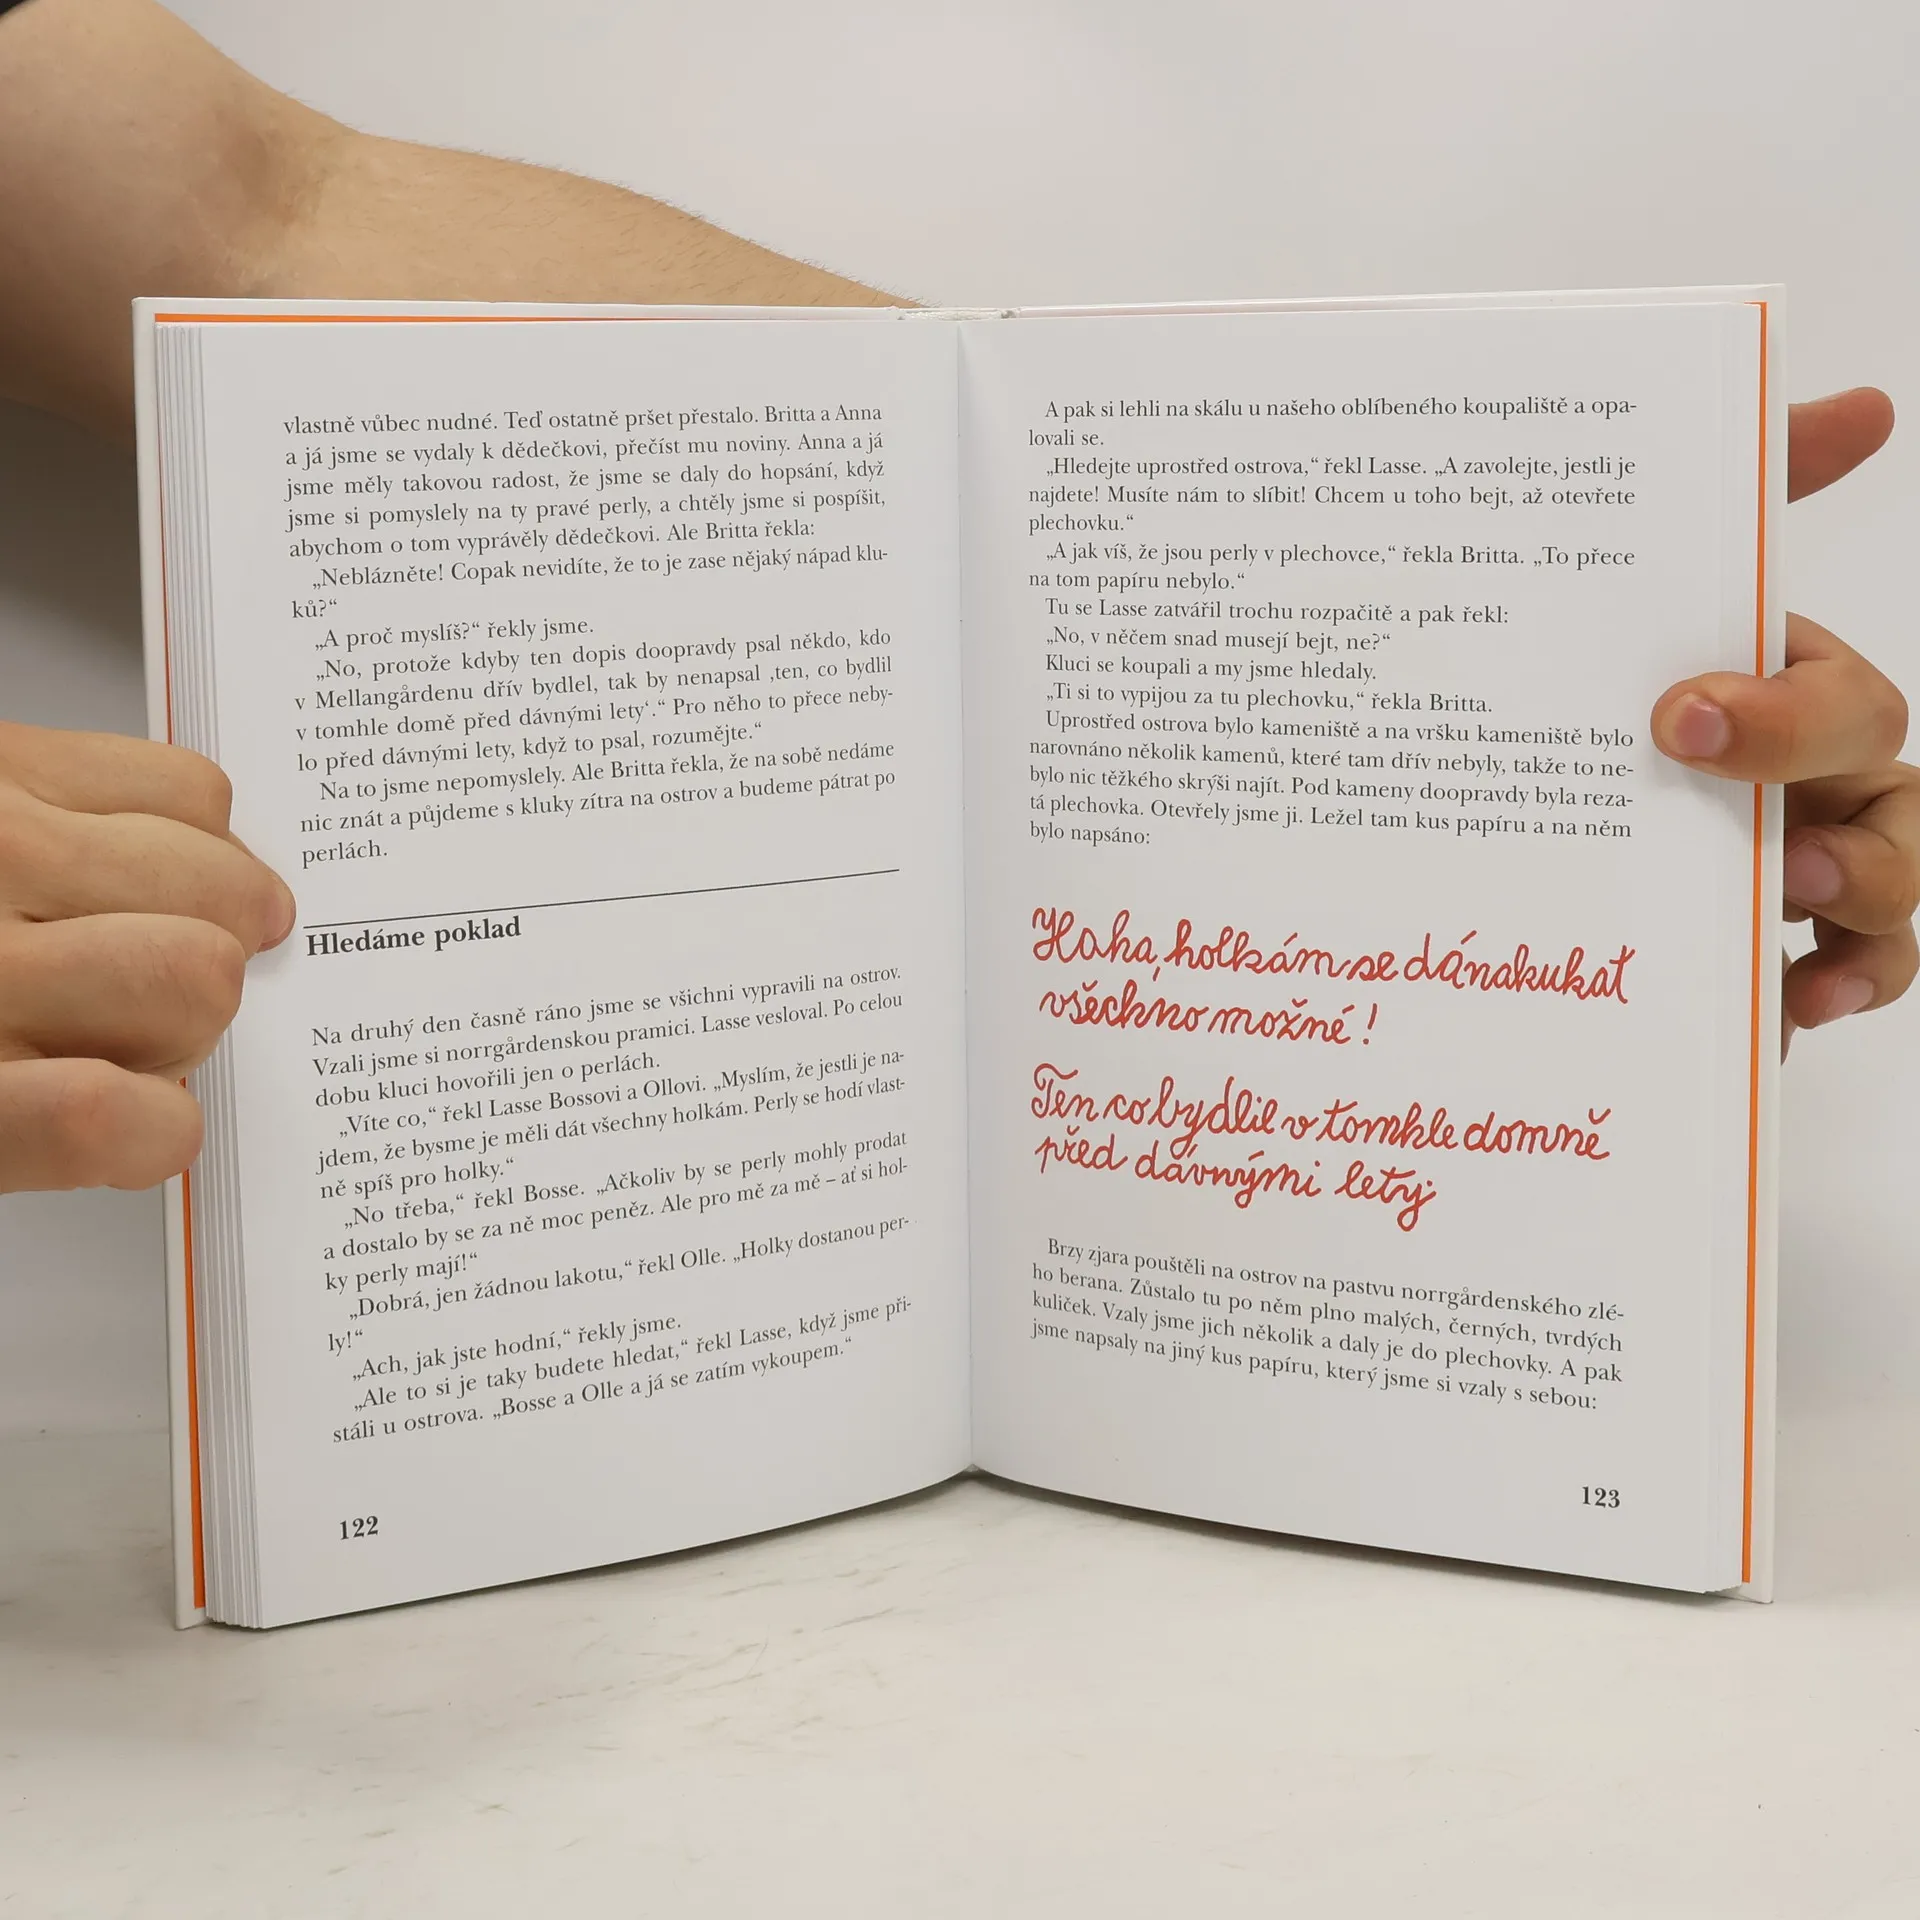 vlastně vůbec nudné. Teď ostatně pršet přestalo. Britta a Anna
a já jsme se vydaly k dědečkovi, přečíst mu noviny. Anna a já
jsme měly takovou radost, že jsme se daly do hopsání, když
jsme si pomyslely na ty pravé perly, a chtěly jsme si pospíšit,
abychom o tom vyprávěly dědečkovi. Ale Britta řekla:
„Neblázněte! Copak nevidíte, že to je zase nějaký nápad klu-
ků?“
„A proč myslíš?“ řekly jsme.
„No, protože kdyby ten dopis doopravdy psal někdo, kdo
v Mellangårdenu dřív bydlel, tak by nenapsal ‚ten, co bydlil
v tomhle domě před dávnými lety‘.“ Pro něho to přece neby-
lo před dávnými lety, když to psal, rozumějte.“
Na to jsme nepomyslely. Ale Britta řekla, že na sobě nedáme
nic znát a půjdeme s kluky zítra na ostrov a budeme pátrat po
perlách.
Hledáme poklad
Na druhý den časně ráno jsme se všichni vypravili na ostrov.
Vzali jsme si norrgårdenskou pramici. Lasse vesloval. Po celou
dobu kluci hovořili jen o perlách.
„Víte co,“ řekl Lasse Bossovi a Ollovi. „Myslím, že jestli je na-
jdem, že bysme je měli dát všechny holkám. Perly se hodí vlast-
ně spíš pro holky.“
„No třeba,“ řekl Bosse. „Ačkoliv by se perly mohly prodat
a dostalo by se za ně moc peněz. Ale pro mě za mě – ať si hol-
ky perly mají!“
„Dobrá, jen žádnou lakotu,“ řekl Olle. „Holky dostanou per-
ly!“
„Ach, jak jste hodní,“ řekly jsme.
„Ale to si je taky budete hledat,“ řekl Lasse, když jsme při-
stáli u ostrova. „Bosse a Olle a já se zatím vykoupem.“
122
A pak si lehli na skálu u našeho oblíbeného koupaliště a opa-
lovali se.
„Hledejte uprostřed ostrova,“ řekl Lasse. „A zavolejte, jestli je
najdete! Musíte nám to slíbit! Chcem u toho bejt, až otevřete
plechovku.“
„A jak víš, že jsou perly v plechovce,“ řekla Britta. „To přece
na tom papíru nebylo.“
Tu se Lasse zatvářil trochu rozpačitě a pak řekl:
„No, v něčem snad musejí bejt, ne?“
Kluci se koupali a my jsme hledaly.
„Ti si to vypijou za tu plechovku,“ řekla Britta.
Uprostřed ostrova bylo kameniště a na vršku kameniště bylo
narovnáno několik kamenů, které tam dřív nebyly, takže to ne-
bylo nic těžkého skrýši najít. Pod kameny doopravdy byla reza-
tá plechovka. Otevřely jsme ji. Ležel tam kus papíru a na něm
bylo napsáno:
Haha, holkám se dá nakukat
všechno možné!
Ten co bydlil v tomhle domně
před dávnými lety
Brzy zjara pouštěli na ostrov na pastvu norrgårdenského zlé-
ho berana. Zůstalo tu po něm plno malých, černých, tvrdých
kuliček. Vzaly jsme jich několik a daly je do plechovky. A pak
jsme napsaly na jiný kus papíru, který jsme si vzaly s sebou:
123